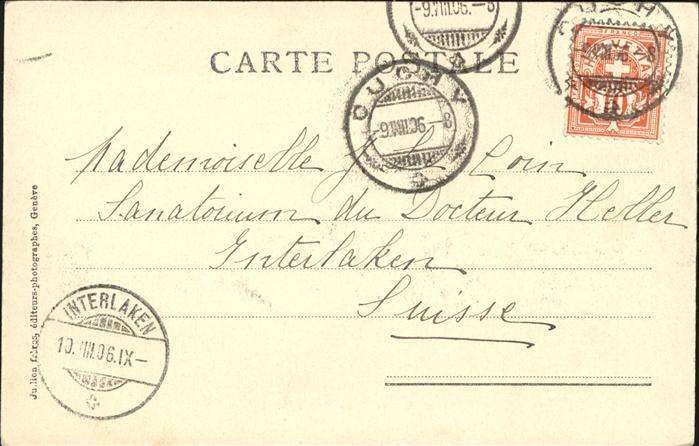 -9.VIII.06.-8
CARTE POSTALE
OUCHY
-9.VIII.06-8
FRANCO
Mademoiselle J. Loin
Sanatorium du Docteur Heller
Interlaken
Suisse
INTERLAKEN
10.VIII.06.IX-
Jullien frères, éditeurs-photographes, Genève